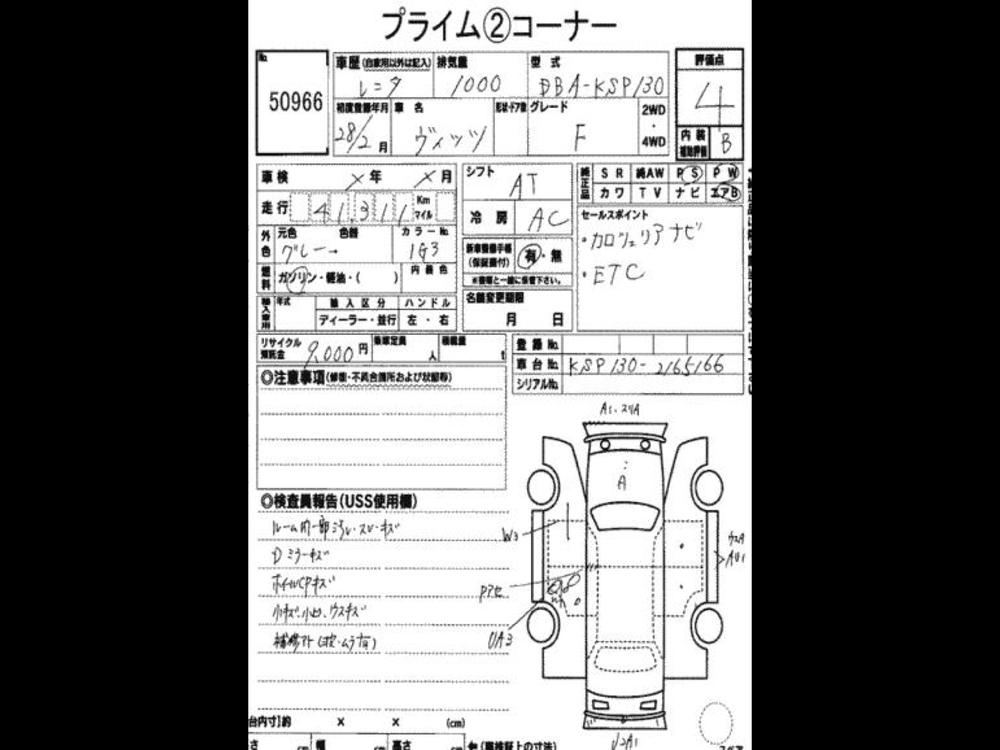 プライム②コーナー
No.
50966
車歴(自家用以外は記入) 排気量 型式 評価点
レンタ 1000 DBA-KSP130 4
初度登録年月 車名 形状・ドア数 グレード 2WD・4WD 内装補助評価
28/2月 ヴィッツ F B
車検 ×年 ×月
走行 41,311 Km マイル
シフト AT
冷房 AC
純正品 SR 純AW PS PW
カワ TV ナビ エアB
セールスポイント
・カロッェリアナビ
・ETC
外色 元色 色替 カラーNo.
グレー→ 1G3
新車整備手帳(保証書付) 有・無
※書類と一緒に保管下さい。
燃料 ガソリン・軽油・( ) 内装色
名義変更期限
月 日
輸入車用 年式 輸入区分 ハンドル
ディーラー・並行 左・右
リサイクル預託金 9,000円 乗車定員 人 積載量 t
登録No.
車台No. KSP130-2165166
シリアルNo.
◎注意事項(修復・不具合箇所および状態等)
A1.スリA
A
◎検査員報告(USS使用欄)
ルーム内一部汚レ・スレ・キズ
Dミラーキズ
ホイールCPキズ
小キズ・小凹、ウスキズ
補修アト(波・ムラ有)
W3
Pアセ
UA3
ウスA
AU1
台内寸】約 × × (cm)
さ cm 幅 cm 高さ cm